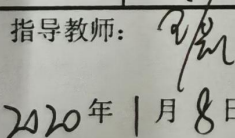 指导教师：
2020年1月8日